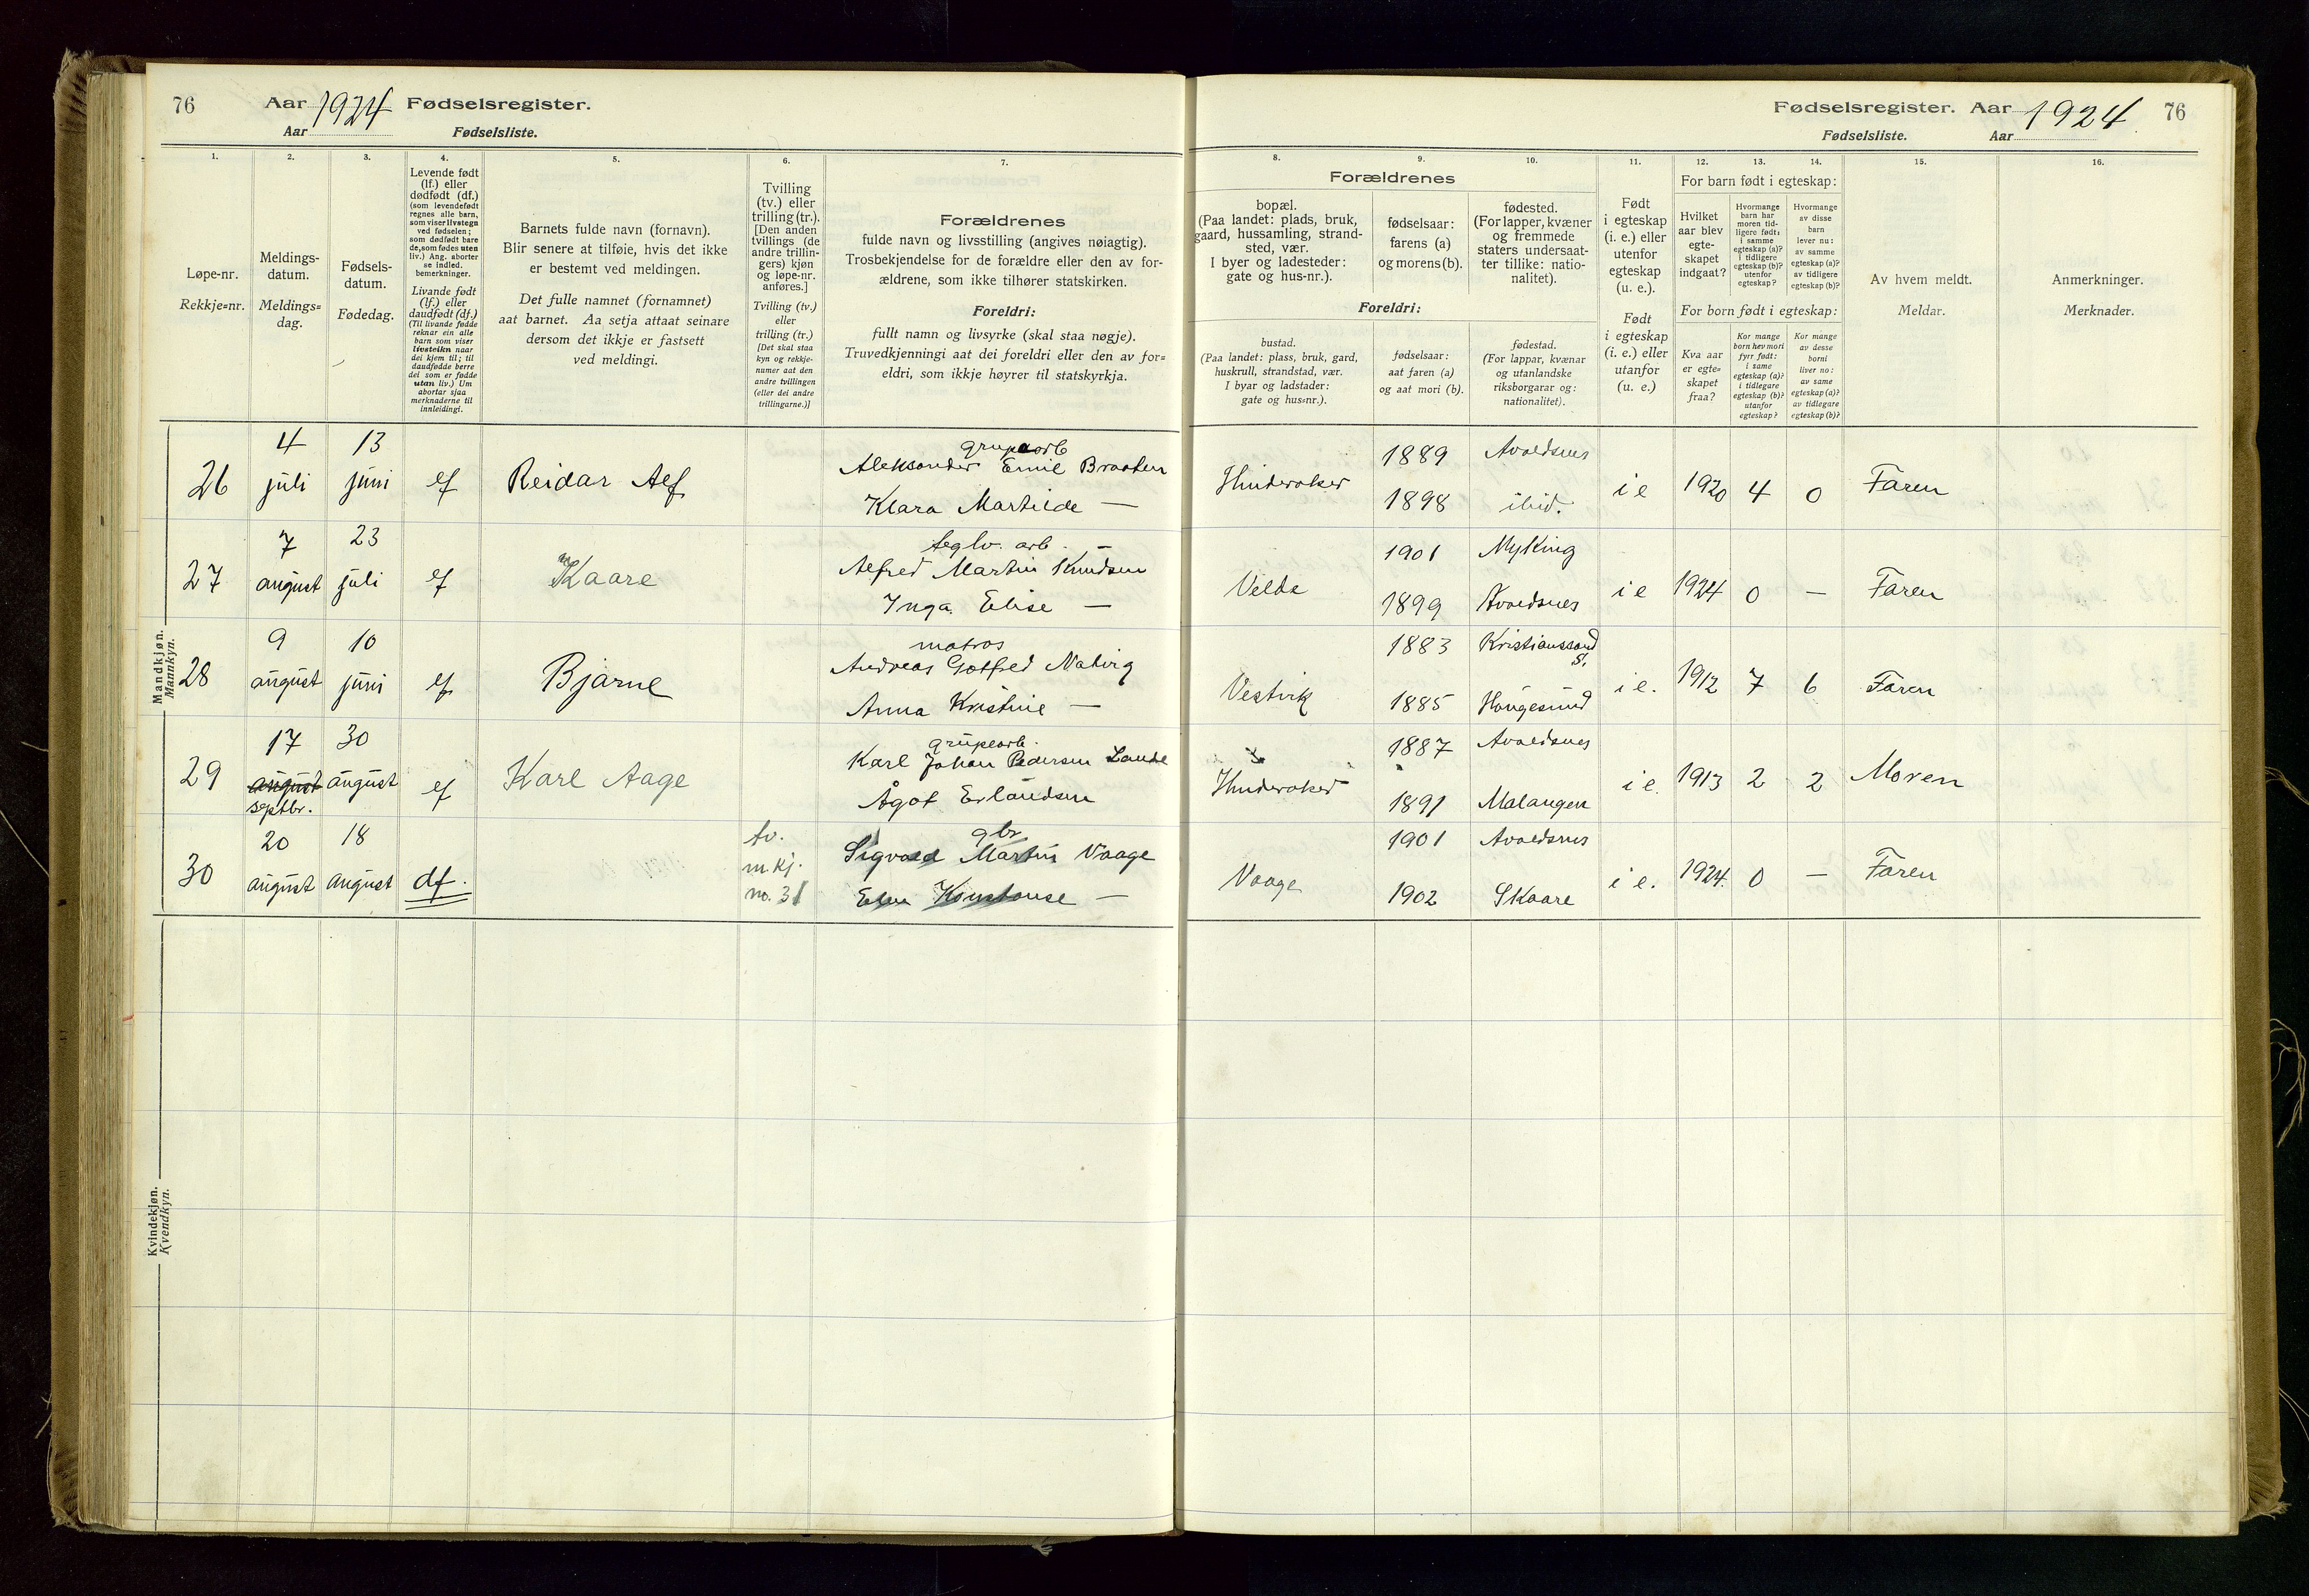 76 Aar 1924 Fødselsregister.
Aar Fødselsliste.
Fødselsregister. Aar 1924 76
Fødselsliste. Aar
1. 2. 3. 4. 5. 6. 7.
Løpe-nr.
Rekkje=nr.
Meldings-
datum.
Meldings=
dag.
Fødsels-
datum.
Fødedag.
Levende født
(lf.) eller
dødfødt (df.)
(som levendefødt
regnes alle barn,
som viser livstegn
ved fødselen;
som dødfødt bare
de, som fødes uten
liv.) Ang. aborter
se indled.
bemerkninger.
Livande født
(lf.) eller
daudfødt (df.)
(Til livande fødde
reknar ein alle
barn som viser
livsteikn naar
dei kjem til; til
daudfødde berre
dei som er fødde
utan liv.) Um
abortar sjaa
merknaderne til
innleidingi.
Barnets fulde navn (fornavn).
Blir senere at tilføie, hvis det ikke
er bestemt ved meldingen.
Det fulle namnet (fornamnet)
aat barnet. Aa setja attaat seinare
dersom det ikkje er fastsett
ved meldingi.
Tvilling
(tv.) eller
trilling (tr.).
[Den anden
tvillings (de
andre trillin-
gers) kjøn
og løpe-nr.
anføres.]
Tvilling (tv.)
eller
trilling (tr.)
[Det skal staa
kyn og rekkje-
numer aat den
andre tvillingen
(eller dei andre
trillingarne.)]
Forældrenes
fulde navn og livsstilling (angives nøiagtig).
Trosbekjendelse for de forældre eller den av for-
ældrene, som ikke tilhører statskirken.
Foreldri:
fullt namn og livsyrke (skal staa nøgje).
Truvedkjenningi aat dei foreldri eller den av for=
eldri, som ikkje høyrer til statskyrkja.
8. 9. 10. 11. 12. 13. 14. 15. 16.
Forældrenes
bopæl.
(Paa landet: plads, bruk,
gaard, hussamling, strand-
sted, vær.
I byer og ladesteder:
gate og hus-nr.).
fødselsaar:
farens (a)
og morens (b).
fødested.
(For lapper, kvæner
og fremmede
staters undersaat-
ter tillike: natio-
nalitet).
Foreldri:
bustad.
(Paa landet: plass, bruk, gard,
huskrull, strandstad, vær.
I byar og ladstader:
gate og hus=nr.).
fødselsaar:
aat faren (a)
og aat mori (b).
fødestad.
(For lappar, kvænar
og utanlandske
riksborgarar og:
nationalitet).
Født
i egteskap
(i. e.) eller
utenfor
egteskap
(u. e.).
Født
i egteskap
(i. e.) eller
utanfor
(u. e.)
For barn født i egteskap:
Hvilket
aar blev
egte-
skapet
indgaat?
Hvormange
barn har
moren tid-
ligere født:
i samme
egteskap (a)?
i tidligere
egteskap (b)?
utenfor
egteskap?
Hvormange
av disse
barn
lever nu:
av samme
egteskap (a)?
av tidligere
egteskap (b)?
For born født i egteskap:
Kva aar
er egte=
skapet
fraa?
Kor mange
born hev mori
fyrr født:
i same
egteskap (a)?
i tidlegare
egteskap (b)?
utanfor
egteskap?
Kor mange
av desse
borni
liver no:
av same
egteskap (a)?
av tidlegare
egteskap (b)?
Av hvem meldt.
Meldar.
Anmerkninger.
Merknader.
Mandkjøn.
Mannkyn.
26 4 juli 13 juni lf Reidar Alf
grubearb
Aleksander Emil Braaten
Klara Martilde —
Hinderaker 1889 Avaldsnes
1898 ibid.
i e 1920 4 0 Faren
27 7 august 23 juli lf Kaare
teglv. arb.
Alfred Martin Knudsen
Inga Elise —
Velde 1901 Myking
1899 Avaldsnes
i e 1924 0 — Faren
28 9 august 10 juni lf Bjarne
matros
Andreas Gotfred Natvig
Anna Kristine —
Vestvik 1883 Kristianssand S.
1885 Haugesund
i e. 1912 7 6 Faren
29 17 august septbr. 30 august lf Karl Aage
grubearb.
Karl Johan Pedersen Lande
Ågot Erlandsen
Hinderaker 1887 Avaldsnes
1891 Malangen
i e. 1913 2 2 Moren
30 20 august 18 august df. tv.
m.kj.
no. 31
gbr
Sigvald Martin Vaage
Elen Konstanse —
Vaage 1901 Avaldsnes
1902 Skaare
i e. 1924. 0 — Faren
Kvindekjøn.
Kvendkyn.